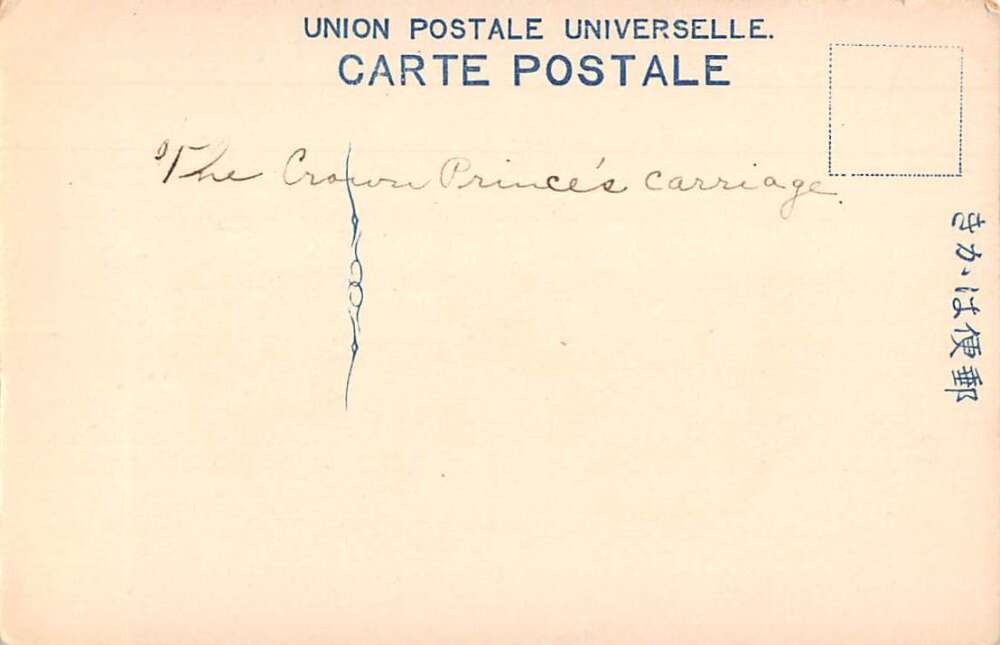 UNION POSTALE UNIVERSELLE.
CARTE POSTALE
The Crown Prince's carriage.
きかは便郵